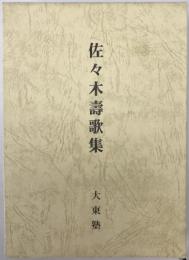 佐々木壽歌集
大東塾